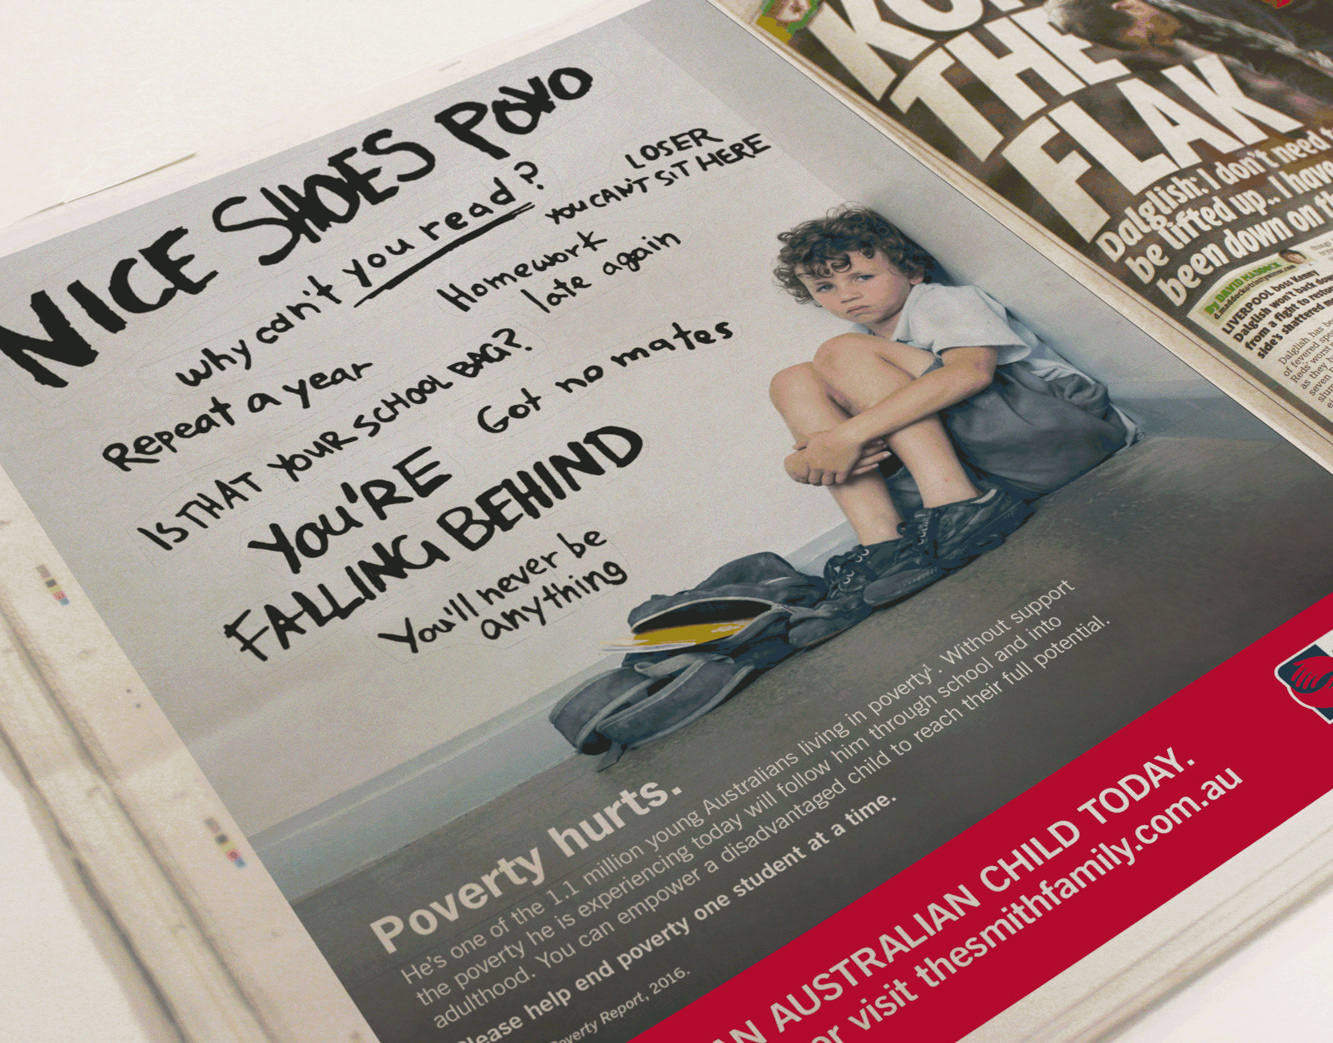 NICE SHOES POVO
LOSER
YOU CAN'T SIT HERE
Why can't you read?
Homework
late again
Repeat a year
IS THAT YOUR SCHOOL BAG?
Got no mates
YOU'RE
FALLING BEHIND
You'll never be
anything
Poverty hurts.
He's one of the 1.1 million young Australians living in poverty¹. Without support
the poverty he is experiencing today will follow him through school and into
adulthood. You can empower a disadvantaged child to reach their full potential.
Please help end poverty one student at a time.
Poverty Report, 2016.
AN AUSTRALIAN CHILD TODAY.
or visit thesmithfamily.com.au
THE
FLAK
Dalglish: I don't need
be lifted up.. I have
been down on
By DAVID MADDOCK
LIVERPOOL boss Kenny
Dalglish won't back down
from a fight to
side's shattered
Dalglish has
of fevered
Reds' worst
as they
seven